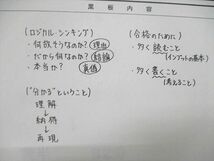 黒板内容
(ロジカル・シンキング)
・何故そうなのか? 理由
・だから何なのか? 結論
・本当か? 真偽
("分かる"ということ)
理解
↓
納得
↓
再現
(合格のために)
・多く読むこと
(インプットの基本)
・多く書くこと
(考えること)